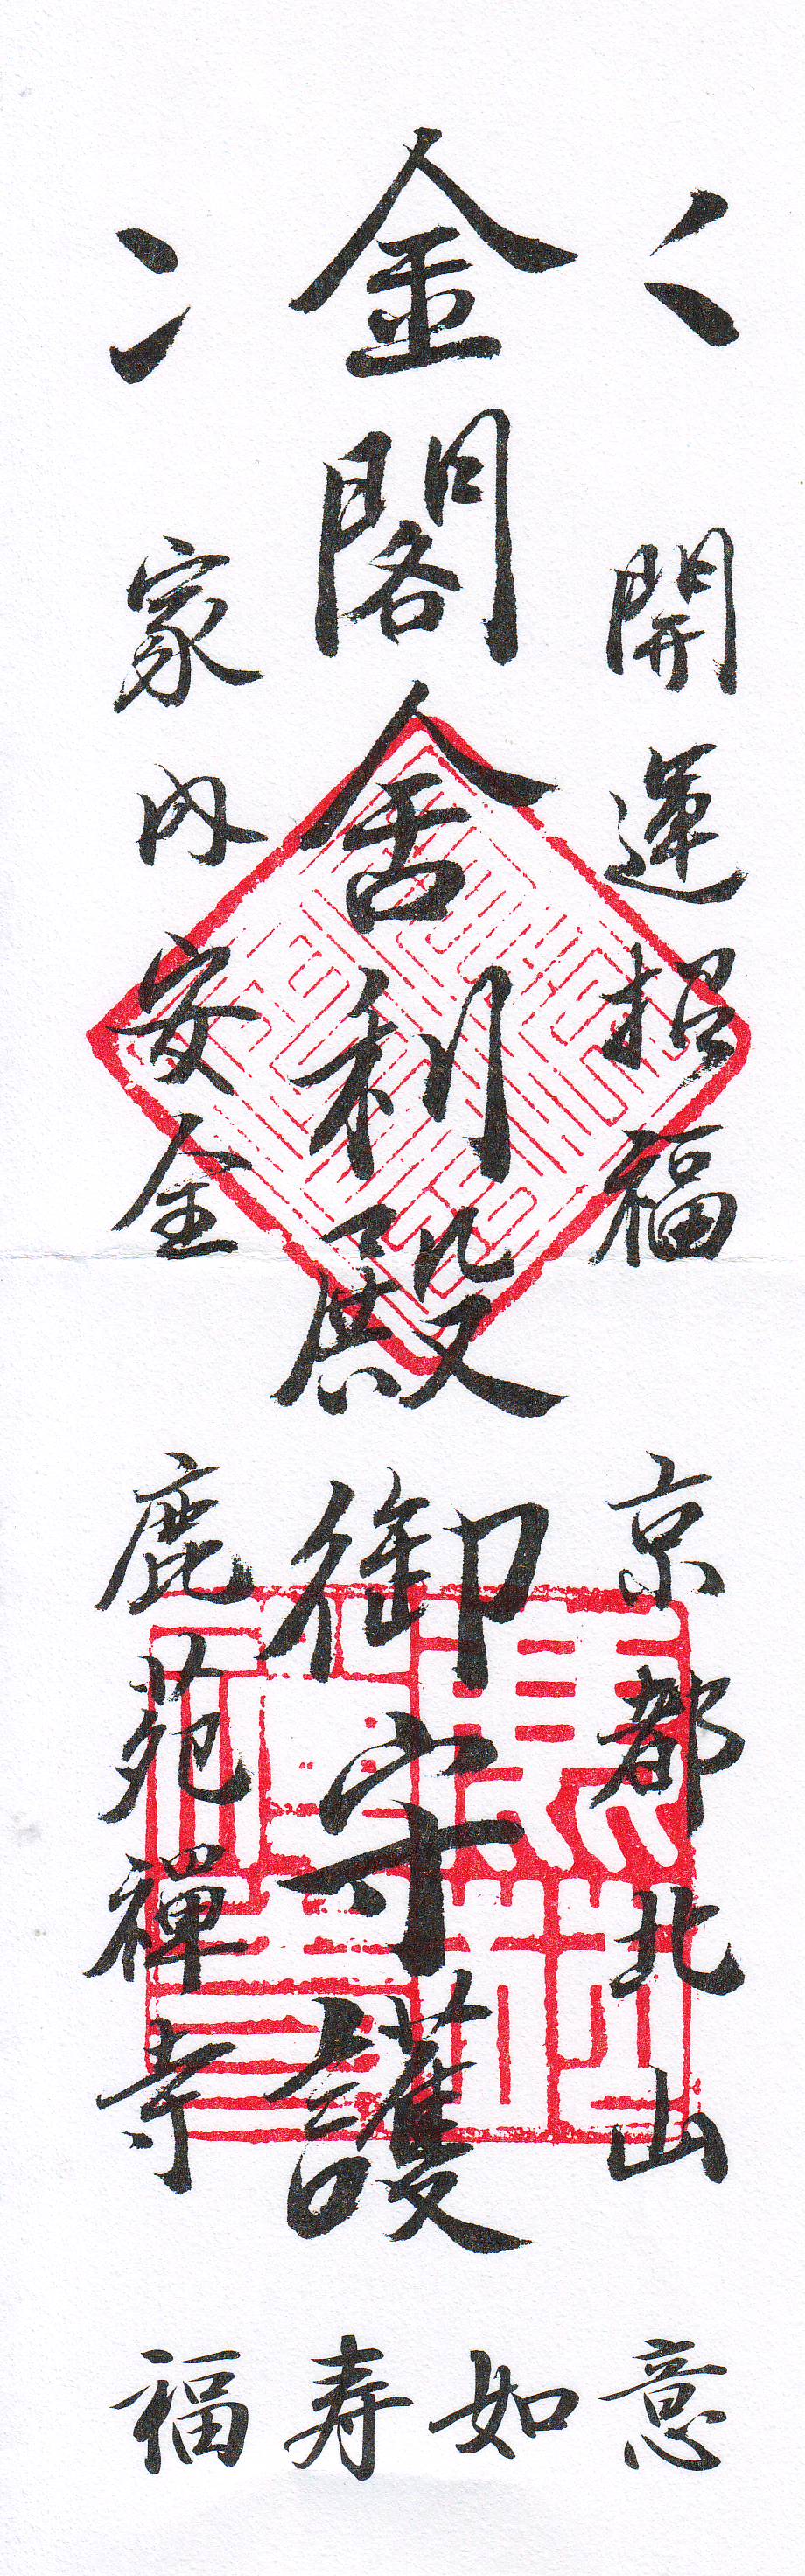 開運招福
京都北山
金閣舍利殿
御守護
家內安全
鹿苑禪寺
如意
福寿